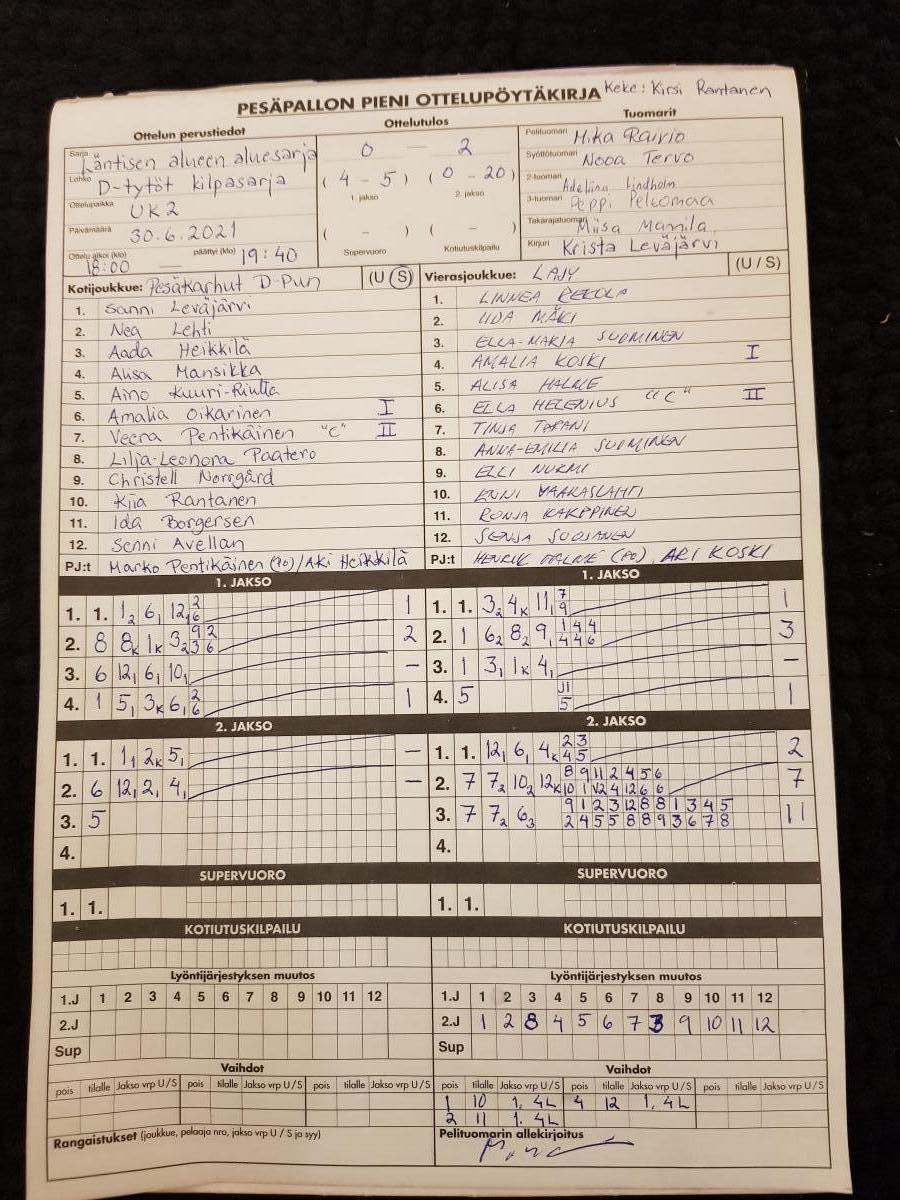 PESÄPALLON PIENI OTTELUPÖYTÄKIRJA Keke: Kirsi Rantanen
Ottelun perustiedot
Sarja Läntisen alueen aluesarja
Lohko D-tytöt kilpasarja
Ottelupaikka UK2
Päivämäärä 30.6.2021
Ottelu alkoi (klo) 18:00 päättyi (klo) 19:40
Ottelutulos
0 — 2
( 4 - 5 ) ( 0 - 20 )
1. jakso 2. jakso
( - ) ( - )
Supervuoro Kotiutuskilpailu
Tuomarit
Pelituomari Mika Raivio
Syöttötuomari Nooa Tervo
2-tuomari Adeliina Lindholm
3-tuomari Peppi Peltomaa
Takarajatuomari Miisa Mannila
Kirjuri Krista Leväjärvi
Kotijoukkue: Pesäkarhut D-Pun (U/S)
1. Sanni Leväjärvi
2. Nea Lehti
3. Aada Heikkilä
4. Alisa Mansikka
5. Aino Kuuri-Riutta
6. Amalia Oikarinen I
7. Veera Pentikäinen "C" II
8. Lilja-Leonora Paatero
9. Christell Norrgård
10. Kiia Rantanen
11. Ida Borgersen
12. Senni Avellan
PJ:t Marko Pentikäinen (PO)/Aki Heikkilä
Vierasjoukkue: LAJY (U/S)
1. LINNEA REKOLA
2. IIDA MÄKI
3. ELLA-MARIA SUOMINEN
4. AMALIA KOSKI I
5. ALISA HALME
6. ELLA HELENIUS "C" II
7. TINJA TOPANI
8. ANNA-EMILIA SUOMINEN
9. ELLI NURMI
10. ENNI VAAKASLAHTI
11. RONJA KARPPINEN
12. SENJA SUOJANEN
PJ:t HENRIK HALME (PO), ARI KOSKI
1. JAKSO
1. 1. 1₂ 6₁ 12₁ 2 6 1
2. 8 8ₖ 1ₖ 3₂ 9 2 3 6 2
3. 6 12₁ 6₁ 10₁ –
4. 1 5₁ 3ₖ 6₁ 2 6 1
2. JAKSO
1. 1. 1₁ 2ₖ 5₁ –
2. 6 12₁ 2₁ 4₁ –
3. 5
4.
SUPERVUORO
1. 1.
KOTIUTUSKILPAILU
Lyöntijärjestyksen muutos
1.J 1 2 3 4 5 6 7 8 9 10 11 12
2.J
Sup
Vaihdot
pois tilalle Jakso vrp U/S pois tilalle Jakso vrp U/S pois tilalle Jakso vrp U/S
Rangaistukset (joukkue, pelaaja nro, jakso vrp U / S ja syy)
1. JAKSO
1. 1. 3₂ 4ₖ 11₁ 7 9 1
2. 1 6₂ 8₂ 9₁ 1 4 4 4 4 6 3
3. 1 3₁ 1ₖ 4₁ –
4. 5 11 5 1
2. JAKSO
1. 1. 12₁ 6₁ 4ₖ 2 3 4 5 2
2. 7 7₂ 10₂ 12ₖ 8 9 11 2 4 5 6 10 1 12 4 12 6 6 7
3. 7 7₂ 6₃ 9 1 2 3 12 8 8 1 3 4 5 2 4 5 5 8 8 9 3 6 7 8 11
4.
SUPERVUORO
1. 1.
KOTIUTUSKILPAILU
Lyöntijärjestyksen muutos
1.J 1 2 3 4 5 6 7 8 9 10 11 12
2.J 1 2 8 4 5 6 7 3 9 10 11 12
Sup
Vaihdot
pois tilalle Jakso vrp U/S pois tilalle Jakso vrp U/S pois tilalle Jakso vrp U/S
1 10 1. 4L 4 12 1. 4L
2 11 1. 4L
Pelituomarin allekirjoitus